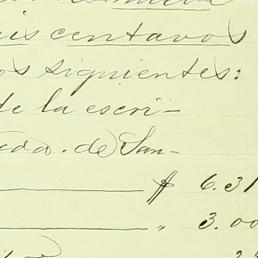 is centavos
os siguientes:
de la escri-
ada. de San-
$ 6.31
" 3.00